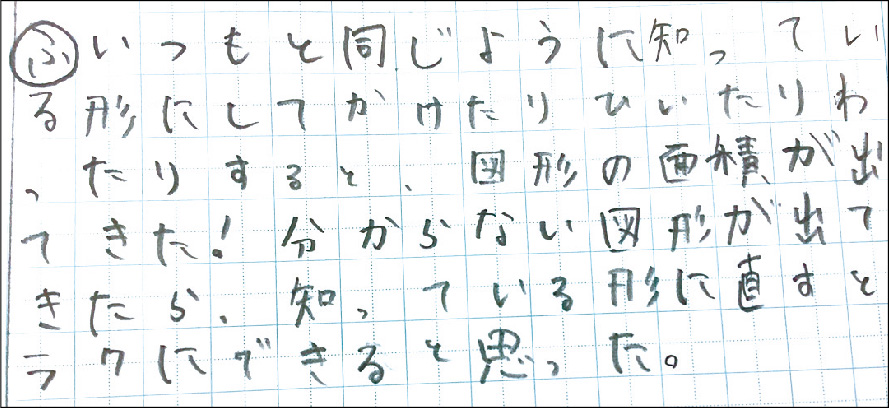 ふ いつもと同じように知ってい
る形にしてかけたりひいたりわ
ったりすると、図形の面積が出
てきた!分からない図形が出て
きたら、知っている形に直すと
ラクにできると思った。